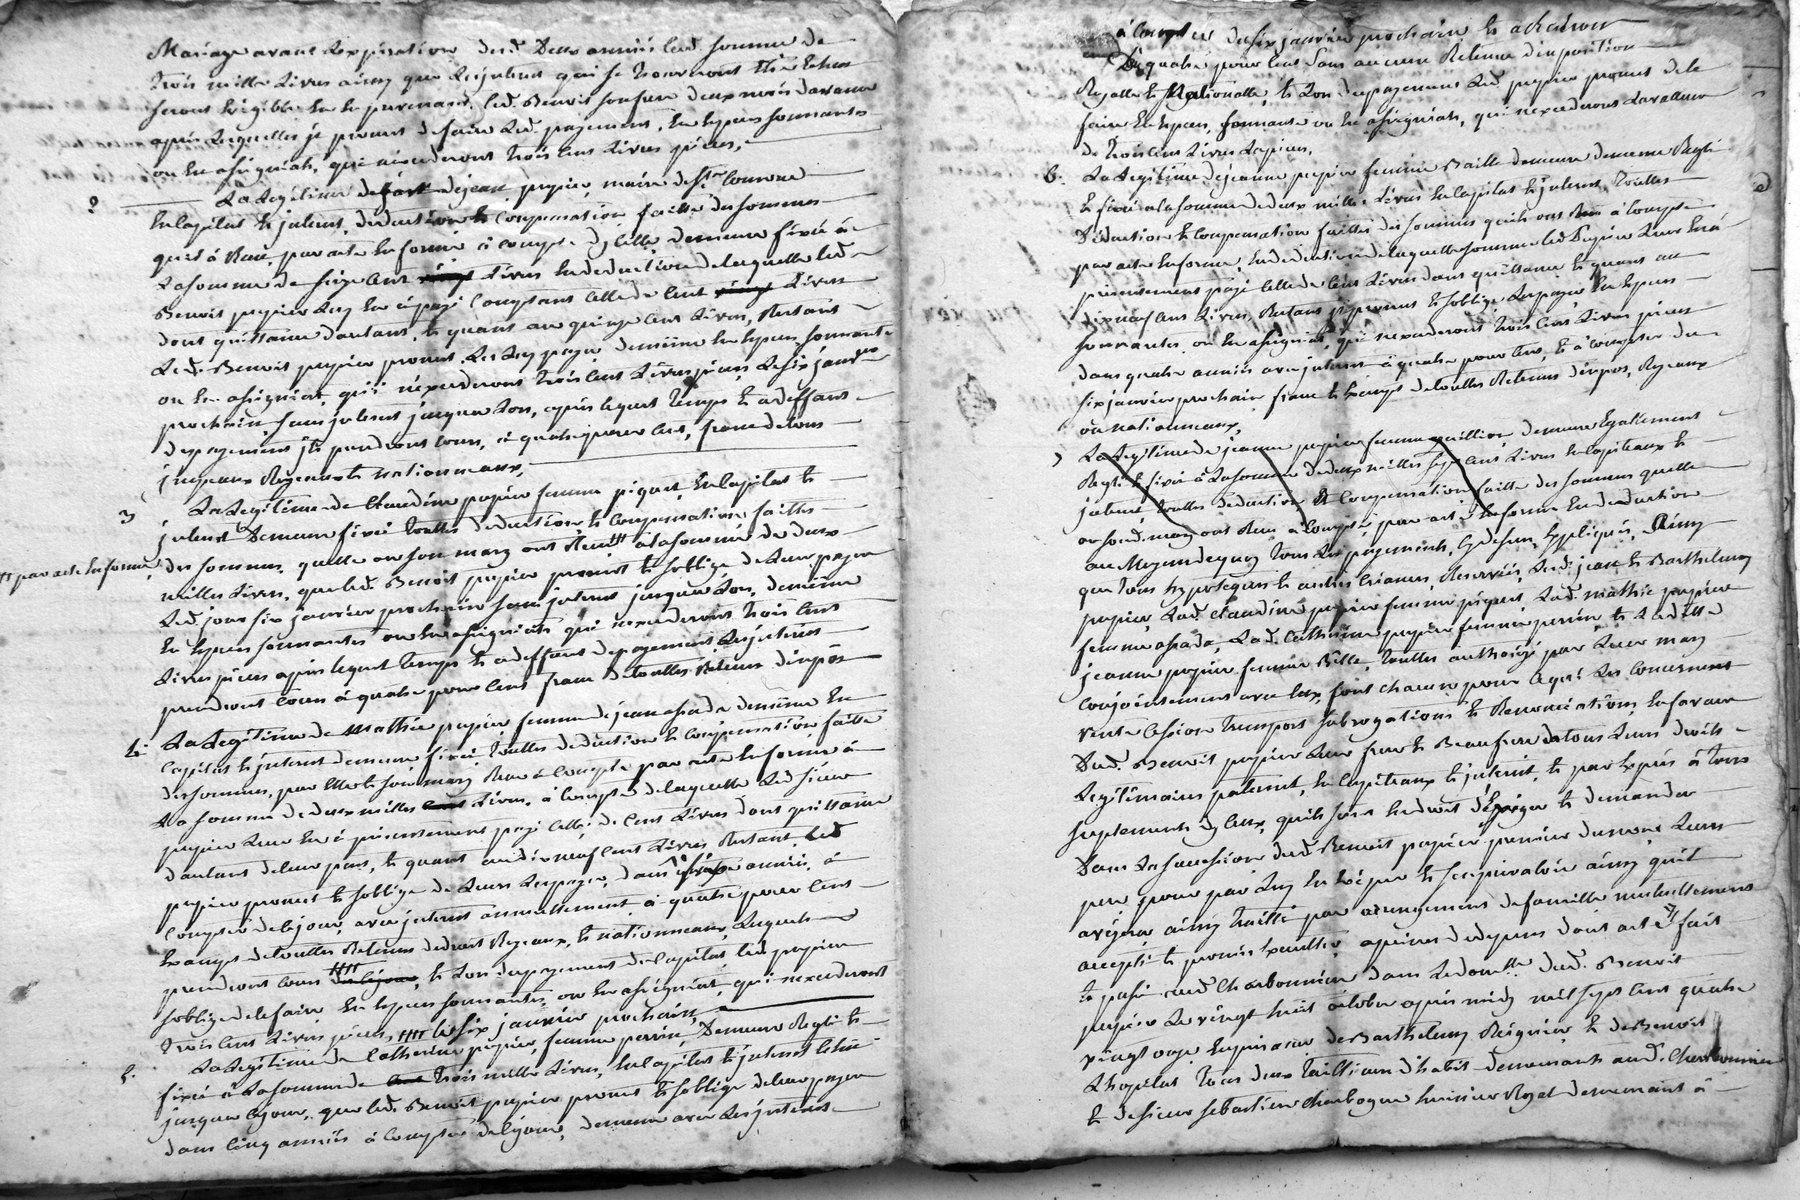 Mariage avant lexpiration desd. deux années lad. somme de
trois mille livres ainsy que les interets qui se trouveront
seront exigible en la prevenant led. Benoit son frere deux mois davance
apres lesquelles je promet de faire led. payement, en especes sonnantes
ou en asignats, qui nexcederont trois cent livres pieces,
2 La Légitime de jean papier, maire de St. Couronne
en capital et interest, deduction et Compensation faitte des sommes
quil à Reçu, par acte en forme à compte dycelle demeure fixée à
la somme de seize cent livres en deduction de laquelle led.
Benoit papier luy en à payé Comptant celle de cent livres
dont quittance dautant, et quant aux quinze cent livres, Restant
led. Benoit papier promet les luy payer de même en especes sonnantes
ou en asignats, qui nexcederont trois cent livres pieces, le six janvier
prochain sans interest jusqua lors, apres lequel temps et a deffaut
de payement ils prendront cours, à quatre pour cent, franc de tous
impeaux Royeaux et nationneaux,
3 La Legitime de Claudine papier femme piquet, en capital et
interest Demeure fixée touttes deduction et Compensation faittes
des sommes, quelle ou son mary ont Recu # à la somme de deux
# par acte en forme,
milles livres, que led. Benoit papier promet et soblige de leur payer
led. jour six janvier prochain sans interest jusqua lors, de même
en especes sonnantes ou en asignats qui nexcederont trois cent
livres pieces apres lequel temps et a deffaut de payement les interets
prendront cours à quatre pour cent franc de touttes Retenus dimpos
4. La Legitime de Mathie papier, femme de jean apada de même en
Capital et interest demeure fixée, touttes deduction et compensation faitte
des sommes, par elle et son mary Recu à Compte par acte en forme à
la somme de deux milles livres, à Compte de laquelle led. sieur
papier leur en à presentement payé celle de cent livres dont quittance
dautant de leur part, et quant au dix neuf cent livres Restant, led.
papier promet et soblige de leurs les payer, dans années, à
Compter de ce jour, avec interest annuellement à quatre pour cent
Exempt de touttes Retenus de droit Royeaux, et nationneaux, lesquels
prendront cours ####, et lors du payement du capital led. papier
soblige de le faire en especes sonnantes, ou en asignat, qui nexcederont
trois cent livres pieces, #### le six janvier prochain,
5. La Legitime de Catherine papier, femme perrin, Demeure Reglé et
fixée à la somme de trois mille livres, en capital et interest
jusqua ce jour, que led. Benoit papier promet et soblige de leur payer
dans cinq années à Compter de ce jour, de même avec les interets
à Compter du six janvier prochain et à raison
De quatre pour cent sans aucune Retenue dimposition
Royalle et Nationalle, et lors du payement led. papier promet de le
faire en especes, sonnante ou en asignats, qui nexcederont la valleur
de trois cent livres la piece,
6. La Legitime de jeanne papier femme Baille demeure de même Reglé
et fixée à la somme de deux mille livres en capital et interest, touttes
Deduction et Compensation faittes des sommes quels ont Recu à Compte
par acte en forme, en deduction de laquelle somme led. Papier leur en à
presentement payé celle de cent livres dont quittance et quant au
dix neuf cent livres, Restant il promet et soblige les payer, en especes
sonnantes, ou en asignat, qui nexcederont trois cent livres pieces
dans quatre années avec interest à quatre pour cent, et à compter du
six janvier prochain franc et exempt de touttes Retenus dimpos, Royeaux
ou nationneaux,
7 La Legitime de jeanne papier femme demeure Egalement
Reglé et fixée à la somme de deux milles sept cent livres en capiteaux et
interest touttes deduction et Compensation faitte des sommes quelle
ou sond. mary ont Recu à Compte par acte en forme en deduction
au Moyen de quoy tous les payements, cy dessus, Expliqués,
que tous hypoteques et autres créances, Reservées, lesd. jean et Barthelemy
papier, lad. Claudine papier femme piquet, lad. mathie papier
femme apada, lad. Catherine papier femme perrin et ladite
jeanne papier femme Baille, touttes authorisé par leur mary
Conjointement avec eux, font chacun pour ce qui les concernent
vente Cession transport subrogations et Renonciations, en faveur
Dud. Benoit papier leur frere et Beaufrere de tous leurs droits
Legitimaires paternel, en capiteaux et interest, et par Exprés à tous
suplements dyceux, quils sont en droit d'Exiger et demander
Dans la succession dud. Benoit papier premier du nom leurs
pere pour par luy en exiger et seprevaloir ainsy quil
avisera ainsy traitté par arrengement de famille mutuellement
accepté et promis executter, apeines de depens dont acte, fait
et passé aud. Charbonnier dans le domille dud. Benoit
papier le vingt huit octobre apres midy mil sept cent quatre
vingt onze En presence de Barthelemy Reignier et de Benoit
Chapelat tous deux tailleurs d'habit demeurants aud. Charbonnier
et de sieur sebastien Charbogne huissier Royal demeurant à